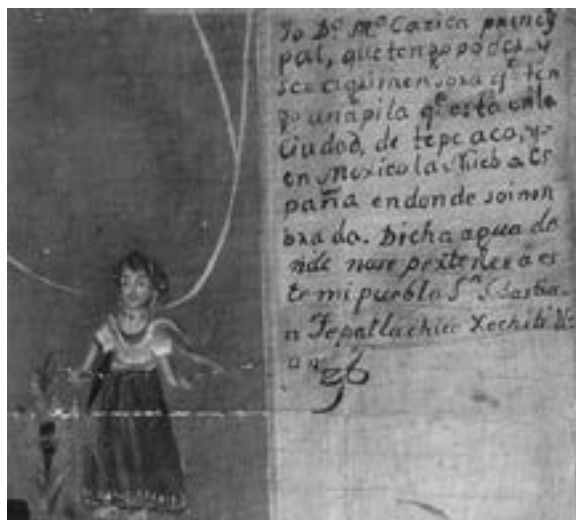 Yo Dª Mª Carica princi
pal, que tengo poder, y
qᵉ ten
go una pila qᵉ está en la
Ciudad, de tepeaca, y
en Mexico la Nueb a Es
paña en donde soi non
bra da. Dicha agua do
nde nase pertenece a es
te mi pueblo Sⁿ Sbastia
n Tepatlachico Xochitl